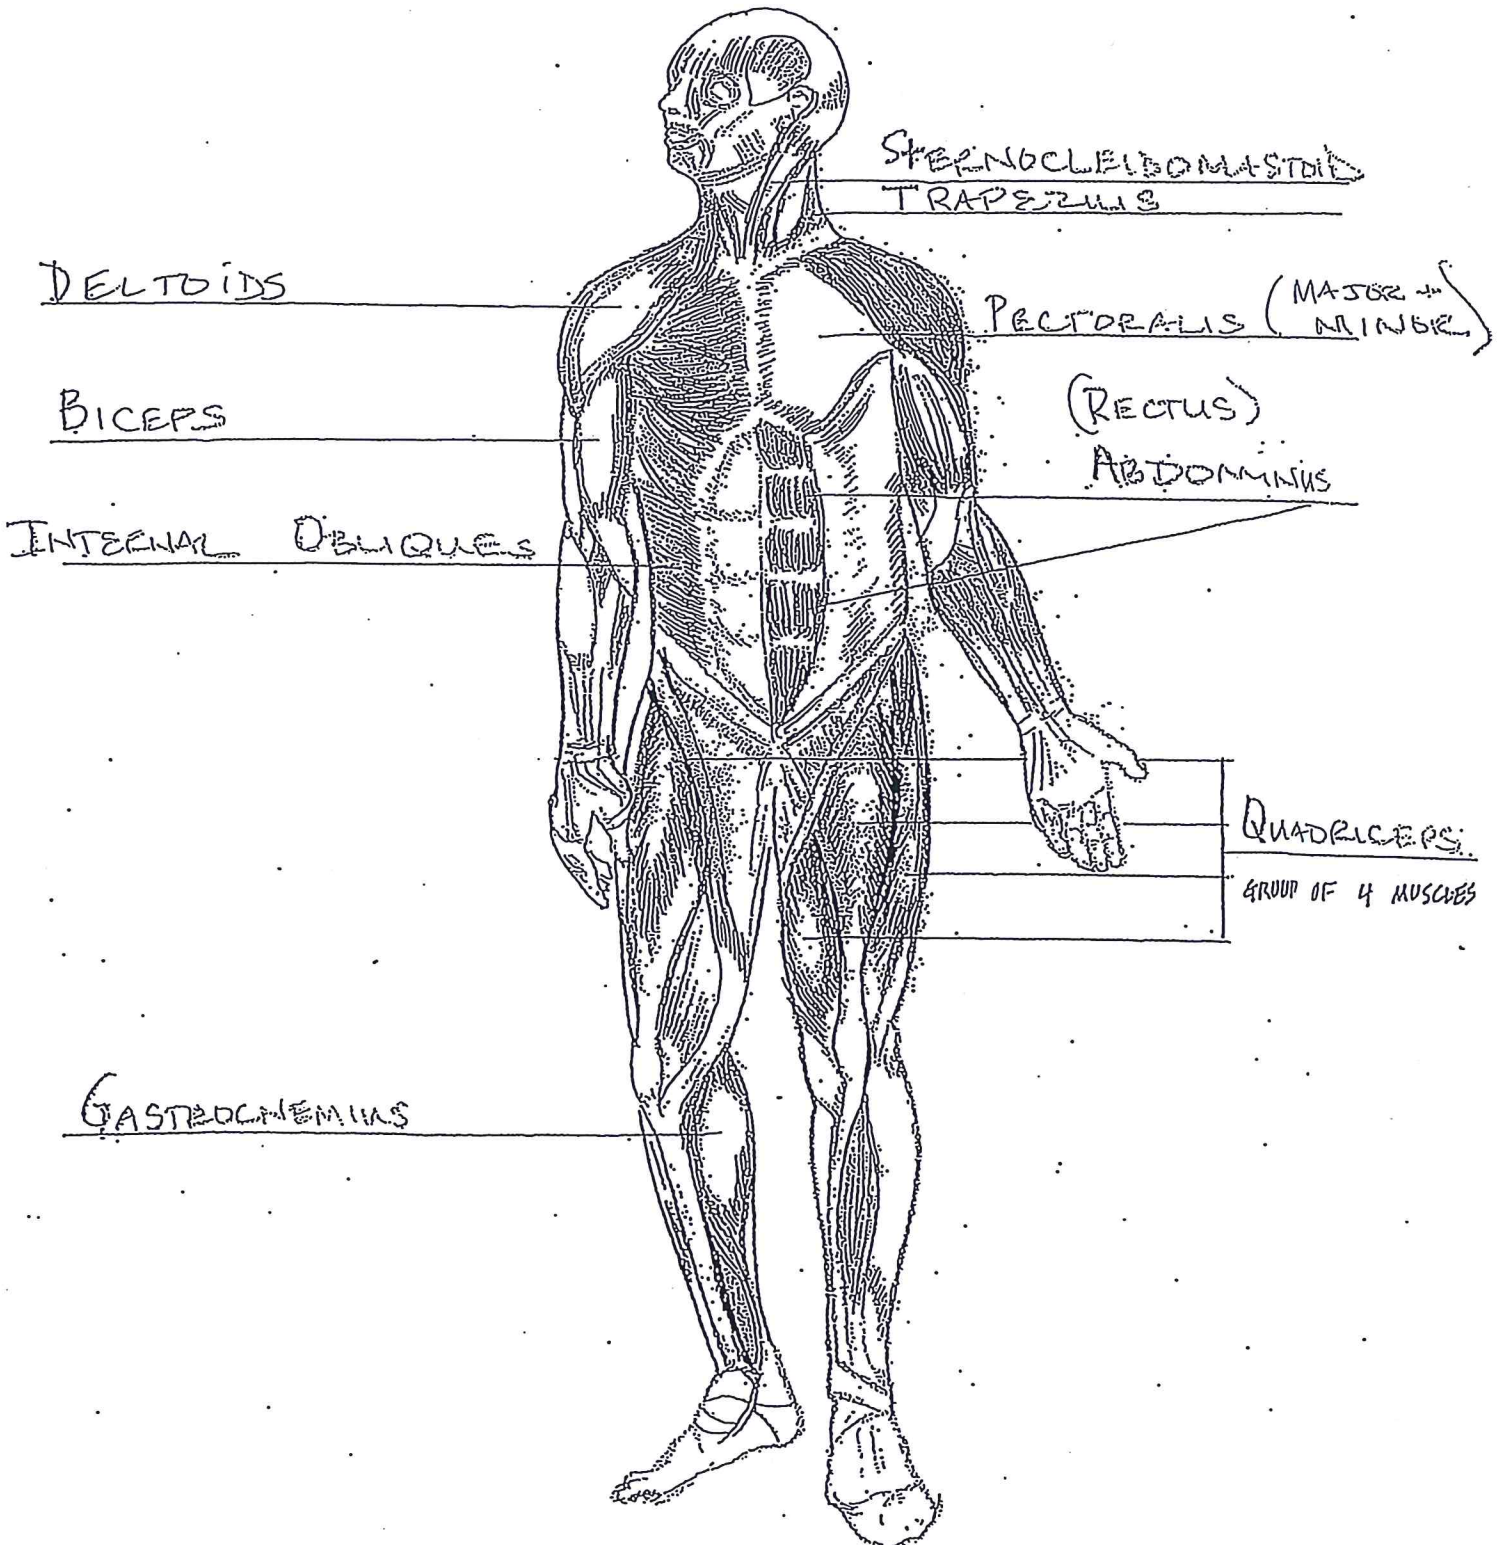 STERNOCLEIDOMASTOID
TRAPEZIUS
DELTOIDS
PECTORALIS (MAJOR +
MINOR)
BICEPS
(RECTUS)
ABDOMINUS
INTERNAL OBLIQUES
QUADRICEPS:
GROUP OF 4 MUSCLES
GASTROCNEMIUS